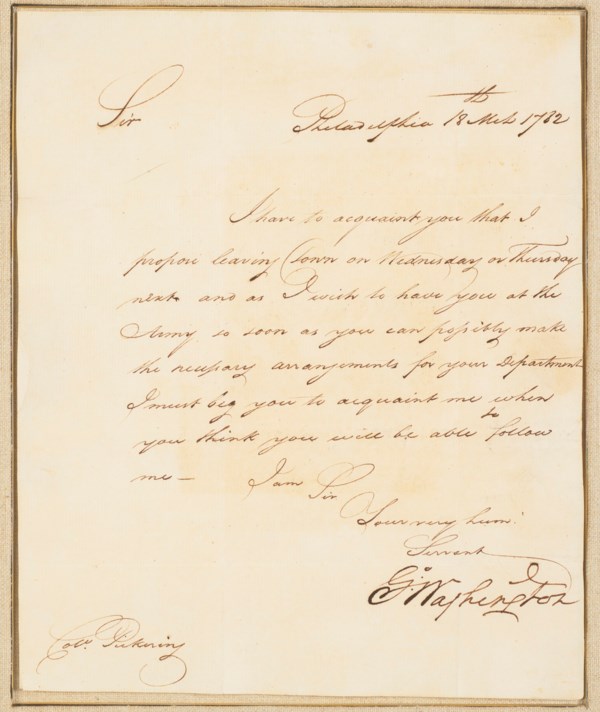 Sir
Philadelphia 18th Mch 1782
I have to acquaint you that I
propose leaving Town on Wednesday or Thursday
next and as I wish to have you at the
Army so soon as you can possibly make
the necessary arrangements for your Department
I must beg you to acquaint me when
you think you will be able to follow
me — I am Sir
Your very hum:
Servant
Go: Washington
Colo. Pickering